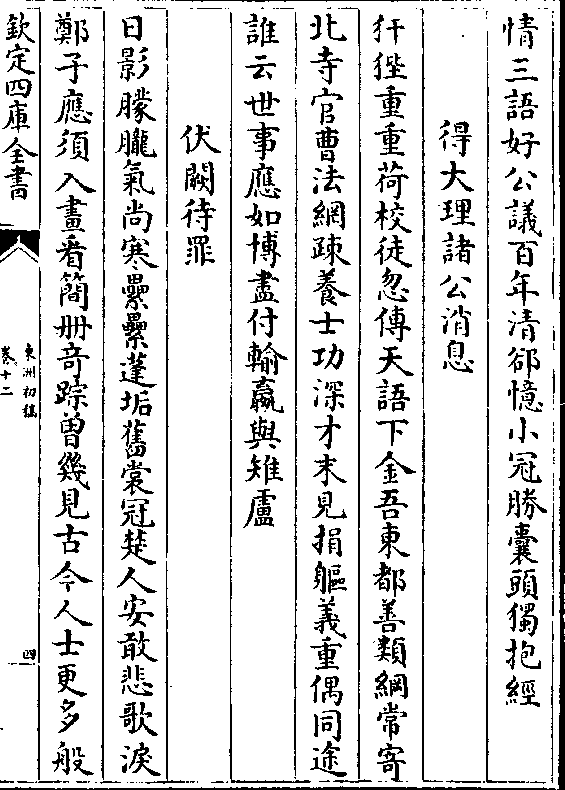 情三語好公議百年清郤憶小冠勝囊頭獨抱經
得大理諸公消息
犴狴重重荷校徒忽傳天語下金吾東都善類綱常寄
北寺官曹法網踈養士功深才未見捐軀義重偶同途
誰云世事應如博盡付輸贏與雉盧
伏闕待罪
日影朦朧氣尚寒纍纍蓬垢舊裳冠楚人安敢悲歌淚
鄭子應須入畫看簡册竒踪曽幾見古今人士更多般
欽定四庫全書
東洲初稿
卷十二
四